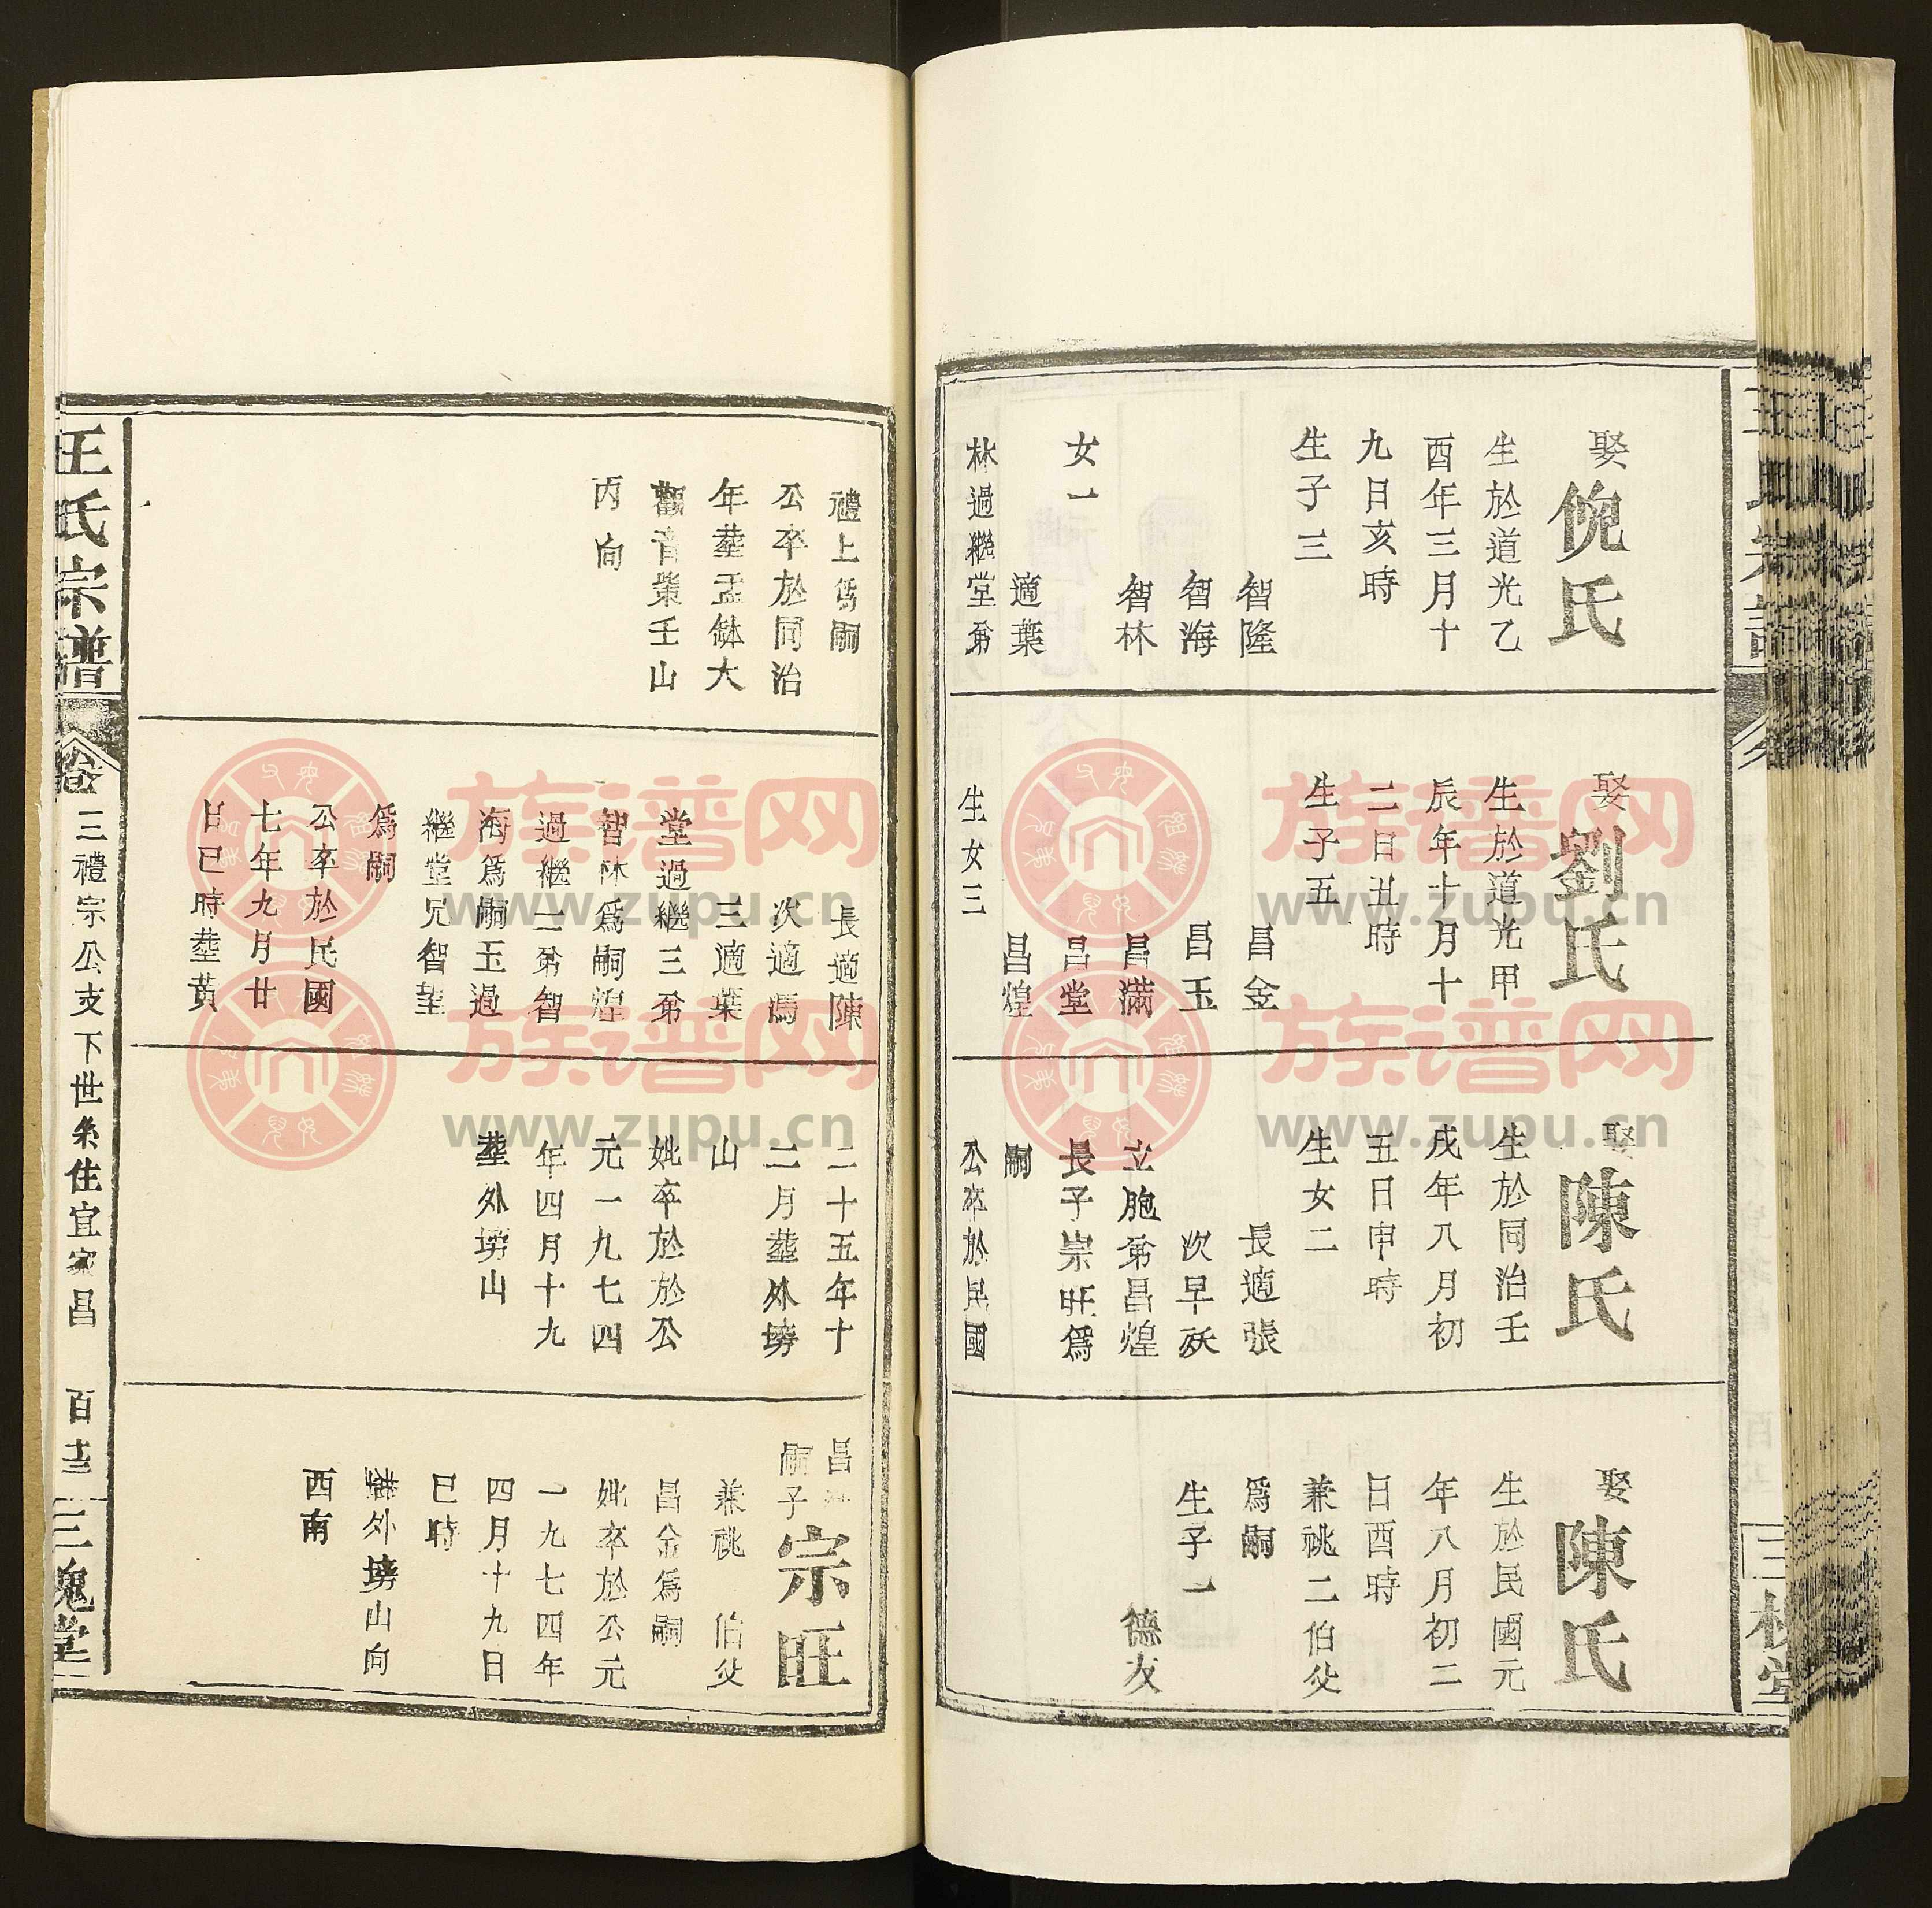 娶
倪氏
生於道光乙
酉年三月十
九日亥時
生子三
智隆
智海
智林
女一
適葉
林過繼堂弟
娶
劉氏
生於道光甲
辰年十月十
二日丑時
生子五
昌金
昌玉
昌滿
昌堂
昌煌
生女三
娶
陳氏
生於同治壬
戌年八月初
五日申時
生女二
長適張
次早殀
立胞弟昌煌
長子宗旺爲
嗣
公卒於民國
娶
陳氏
生於民國元
年八月初二
日酉時
兼祧二伯父
爲嗣
生子一
德友
禮上爲嗣
公卒於同治
年塟盂缽大
觀音㭰壬山
丙向
長適陳
次適馮
三適葉
堂過繼三弟
智林爲嗣煌
過繼二弟智
海爲嗣玉過
繼堂兄智堂
爲嗣
公卒於民國
七年九月廿
日巳時塟黃
二十五年十
二月塟外塝
山
妣卒於於公
元一九七四
年四月十九
塟外塝山
昌
嗣子
宗旺
兼祧 伯父
昌金爲嗣
妣卒於公元
一九七四年
四月十九日
巳時
塟外塝山向
西南
王氏宗譜
卷
三禮宗公支下世系住宜家昌
百
三槐堂
族谱网
www.zupu.cn
族谱网
www.zupu.cn
族谱网
www.zupu.cn
族谱网
www.zupu.cn